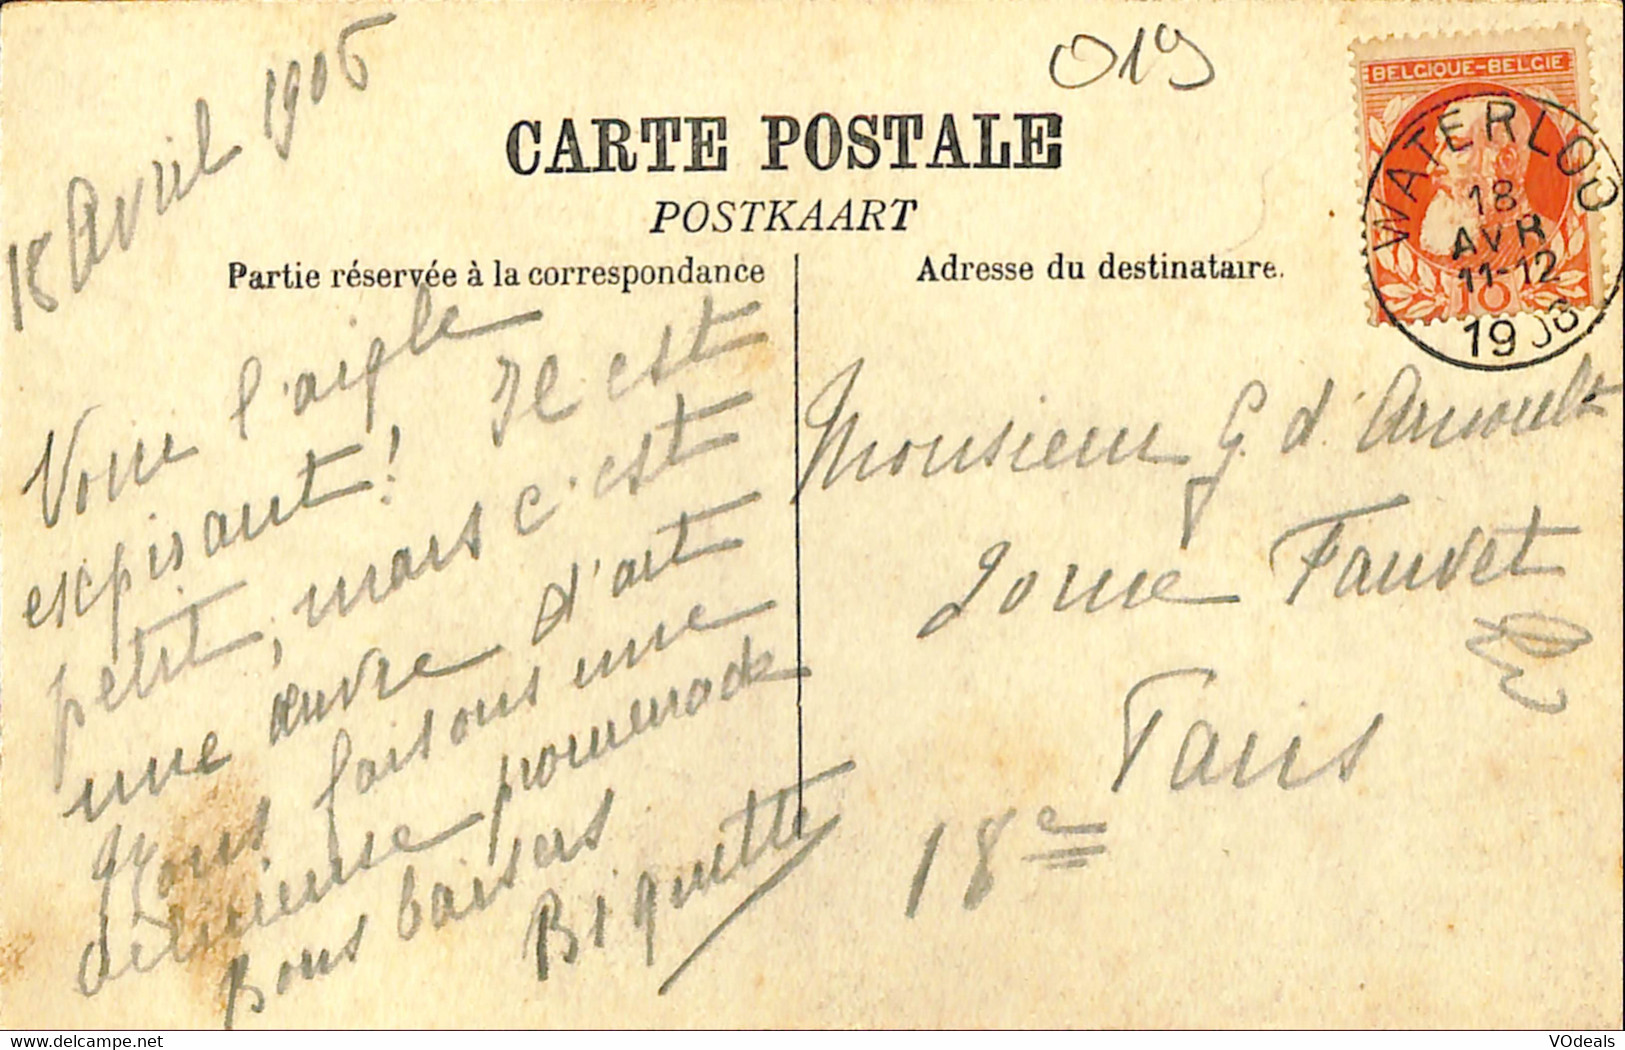 18 Avril 1906
019
BELGIQUE-BELGIE
WATERLOO
18
AVR
11-12
1906
10
CARTE POSTALE
POSTKAART
Partie réservée à la correspondance
Adresse du destinataire.
Voici l'aigle
expirant! Il est
petit, mais c'est
une œuvre d'art
Nous faisons une
délicieuse promenade
Bons baisers
Biquette
Monsieur G. d'Arnoult
Fauvet
Paris
18e
delcampe.net
VOdeals